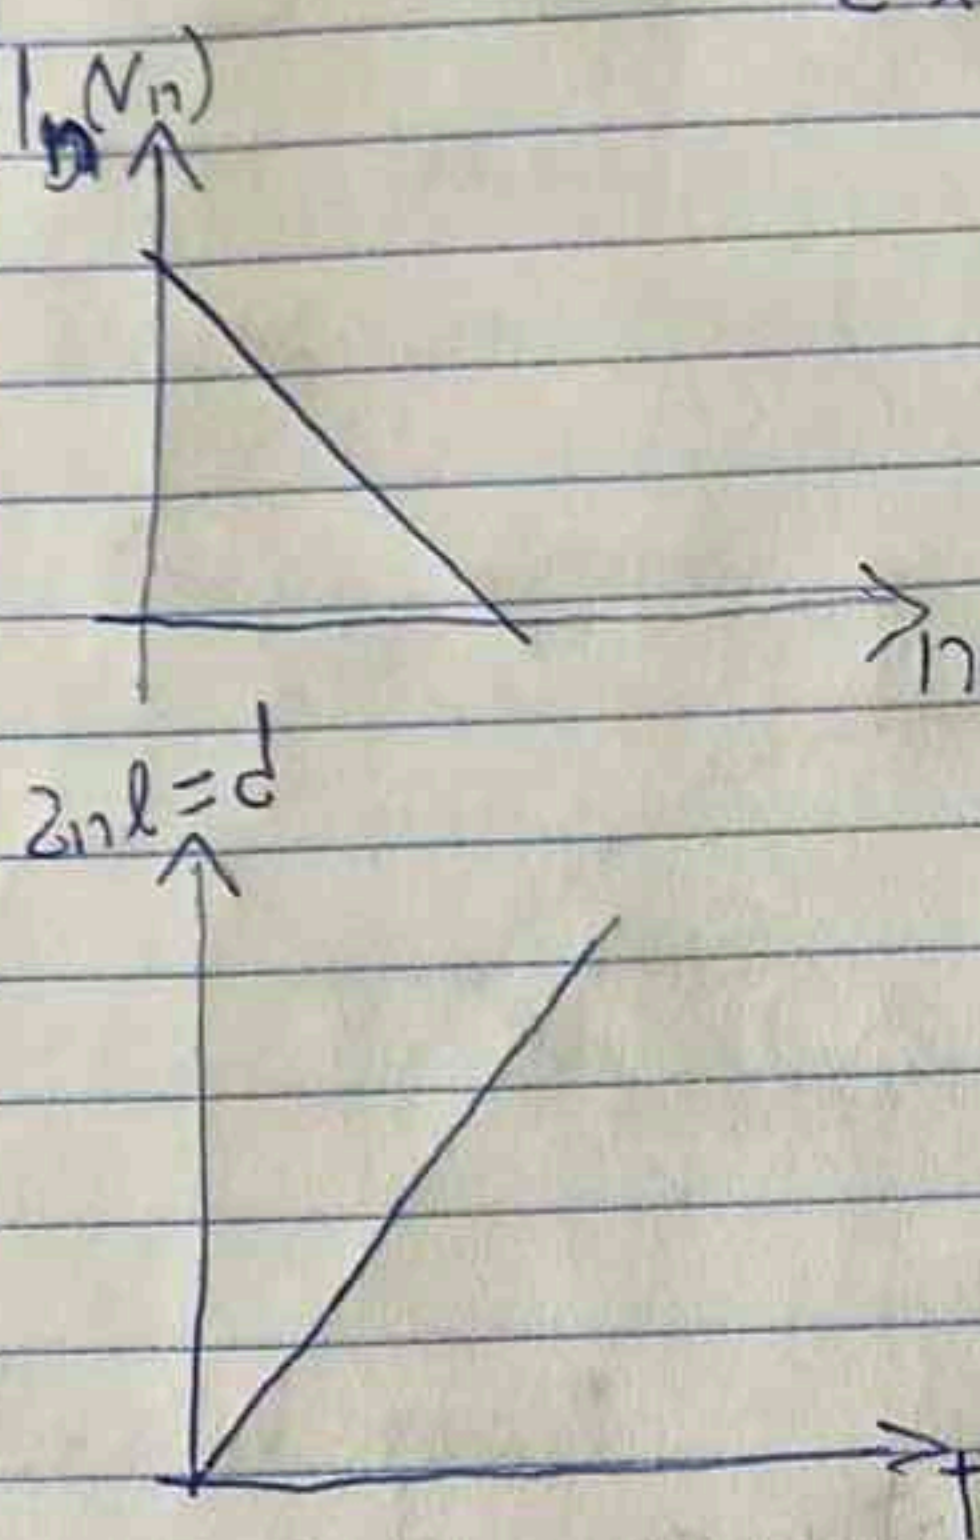 ln(Vn)
n
2nl=d
t